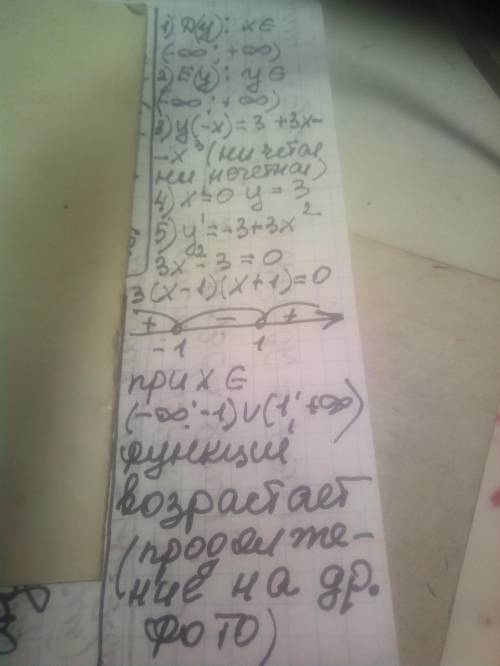 1) D(y): x∈
(-∞; +∞)
2) E(y): y∈
(-∞; +∞)
3) y(-x)=3+3x-
-x³ (ни четная
ни нечетная)
4) x=0 y=3
5) y'=-3+3x²
3x²-3=0
3(x-1)(x+1)=0
+ - +
-1 1
при x∈
(-∞;-1)∪(1;+∞)
функция
возрастает
(продолже-
ние на др.
фото)